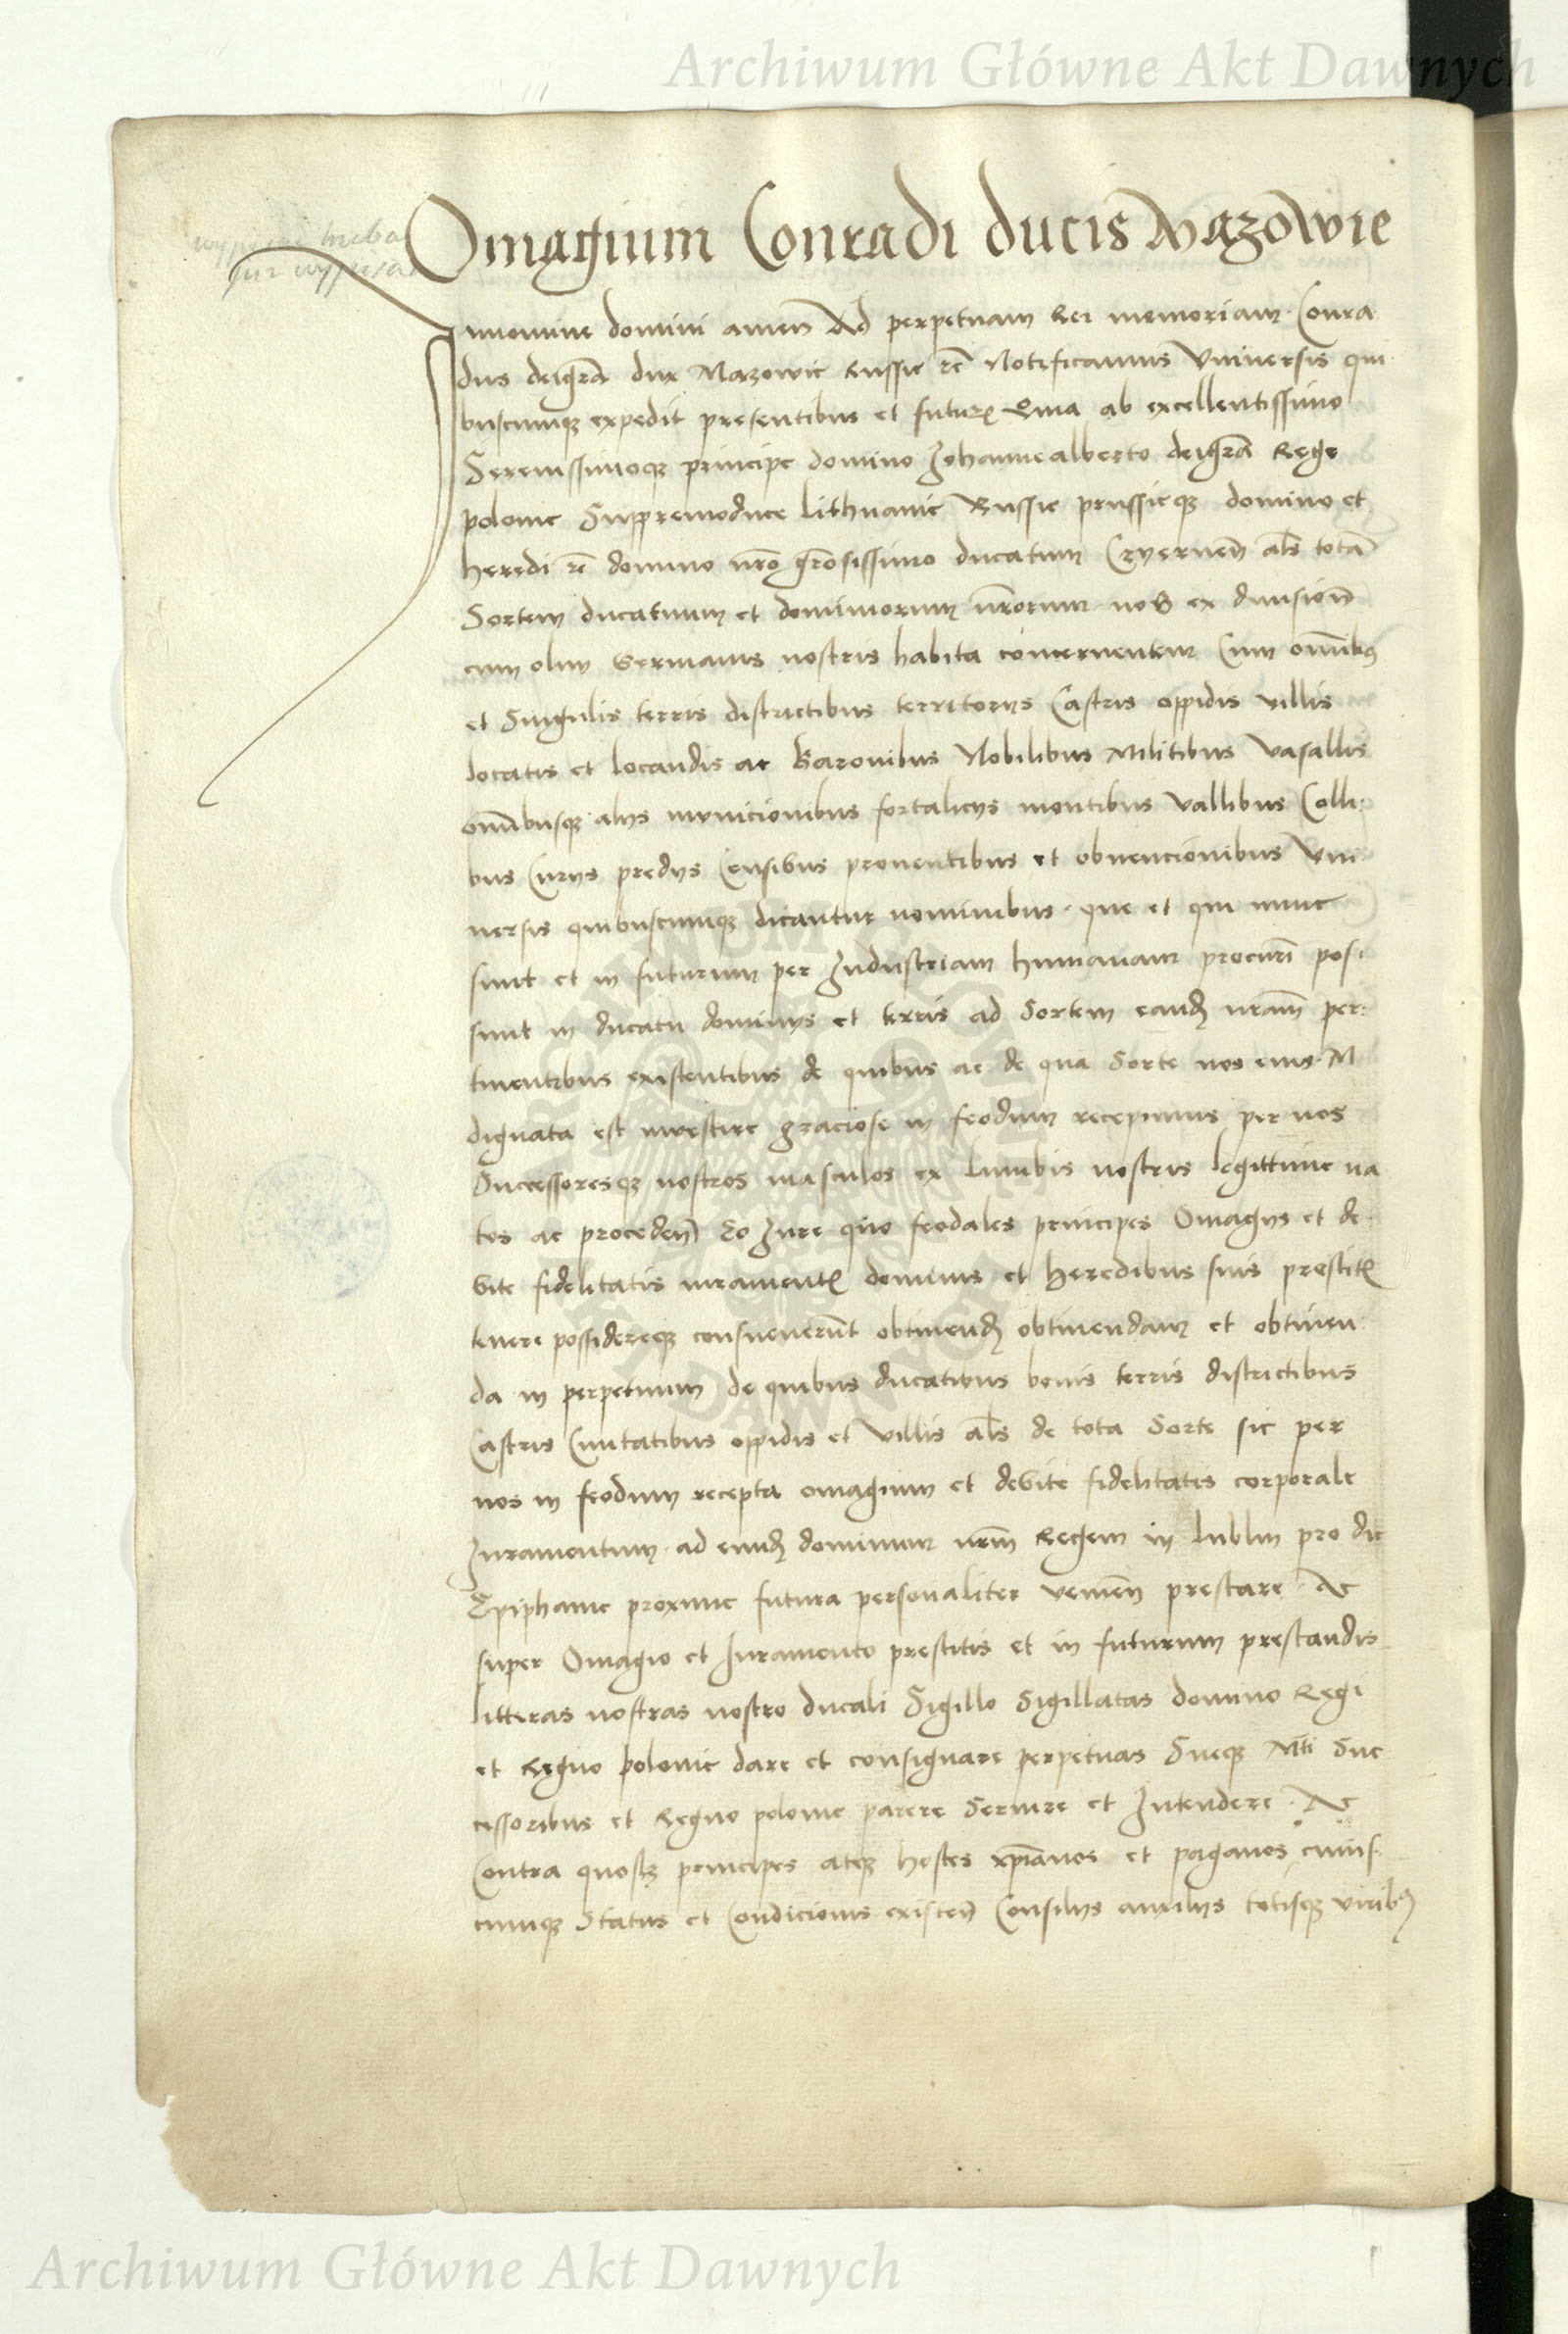 Archiwum Główne Akt Dawnych
Omagium Conradi ducis Mazowie
Innomine domini amen Ad perpetuam Rei memoriam Conra
dus deigrã dux Mazowie Russie rc̃ Notificamus Vniversis qui
buscumqꝫ expedit presentibus et futurꝭ Quia ab excellentissimo
Serenissimoqꝫ principe domino Johannealberto deigrã Rege
polonie Suppremoduce Lithuanie Russie prussieqꝫ domino et
heredi rc̃ domino nr̃o gr̃osissimo ducatum Czyrnen̄ al̃s totã
Sortem ducatuum et dominiorum nr̃orum nos ex diuision̄
cum olim Germanis nostris habita concernentem Cum om̃ibꝰ
et Singulis terris districtibus territorijs Castris oppidis villis
locatis et locandis ac Baronibus Nobilibus Militibus Vasallis
om̃ibusqꝫ alijs municionibus fortalicijs montibus Vallibus Colli
bus Curijs predijs Censibus prouentibus et obuencionibus Vni
uersis quibuscumqꝫ dicantur nominibus que et qui nunc
sunt et in futurum per Industriam humanam procurı̃ pos
sunt in ducatu dominijs et terris ad Sortem eandꝫ nr̃am per
tinentibus existentibus de quibus ac de qua Sorte nos eius M
dignata est inuestire graciose in feodum recepimus per nos
Successoresqꝫ nostros masculos ex lumbis nostris legittime na
tos ac proceden̄ Eo Jure quo feodales principes Omagijs et de
bite fidelitatis iuramentꝭ dominis et heredibus suis prestitꝭ
tenere possidereqꝫ consueuerunt obtinendꝫ obtinendam et obtinen
da in perpetuum de quibus ducatibus bonis terris districtibus
Castris Ciuitatibus oppidis et Villis al̃s de tota Sorte sic per
nos in feodum recepta omagium et debite fidelitatis corporale
Juramentum ad eundꝫ dominum nr̃m Regem in Lublin pro die
Epiphanie proxime futura personaliter venien̄ prestare Ac
super Omagio et Juramento prestitis et in futurum prestandis
litteras nostras nostro ducali Sigillo Sigillatas domino Regi
et Regno polonie dare et consignare perpetuas Sueqꝫ M̃ti Suc
cessoribus et Regno polonie parere Seruire et Intendere Ac
Contra quosꝫ principes atqꝫ hostes xp̃ianos et paganos cuius
cumqꝫ Status et Condicionis existen̄ Consilijs auxilijs totisqꝫ viribꝰ
Archiwum Główne Akt Dawnych